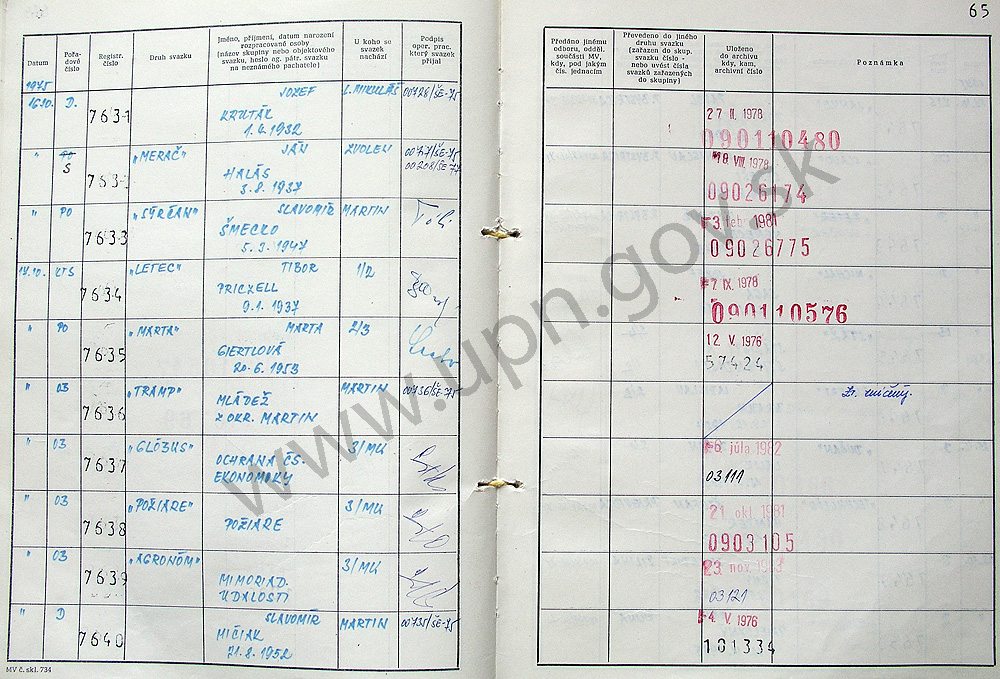 65
Datum
Pořa-
dové
číslo
Registr.
číslo
Druh svazku
Jméno, příjmení, datum narození
rozpracované osoby
(název skupiny nebo objektového
svazku, heslo og. pátr. svazku
na neznámého pachatele)
U koho se
svazek
nachází
Podpis
oper. prac.
který svazek
přijal
Předáno jinému
odboru, odděl.
součásti MV,
kdy, pod jakým
čís. jednacím
Převedeno do jiného
druhu svazku
(zařazen do skup.
svazku číslo -
nebo uvést čísla
svazků zařazených
do skupiny)
Uloženo
do archivu
kdy, kam,
archivní číslo
Poznámka
1975
16.10. D. 7631 JOZEF L. MIKULÁŠ 00726/ŠE-75
KRUTÁK
1.4.1932
27 II. 1978
090110480
" PO 763 „MERAČ" JÁN ZVOLEN
S
HALÁS
3.8.1937
18. VIII. 1978
" PO 7633 „SÝRČAN" SLAVOMÍR MARTIN
ŠMECKO
5.9.1947
-3. febr. 1981
09026775
17.10. KTS 7634 „LETEC" TIBOR 1/2
PRICZELL
9.1.1937
-7. IX. 1978
090110576
" PO 7635 „MARTA" MARTA 2/3
GIERTLOVÁ
20.6.1953
12. V. 1976
57424
" 03 7636 „TRAMP" MARTIN 00736/ŠE-75
MLÁDEŽ
Z OKR. MARTIN
Zv. zničený.
" 03 7637 „GLÓBUS" 3/MU
OCHRANA ČS.
EKONOMIKY
-6. júla 1982
03111
" 03 7638 „POŽIARE" 3/MU
POŽIARE
21. okt. 1981
0903105
" 03 7639 „AGRONÓM" 3/MU
MIMORIAD.
UDALOSTI
23. nov.
03121
" D 7640 SLAVOMÍR MARTIN 00735/ŠE-75
MIČIAK
21.8.1952
-4. V. 1976
101334
MV č. skl. 734
www.upn.gov.sk